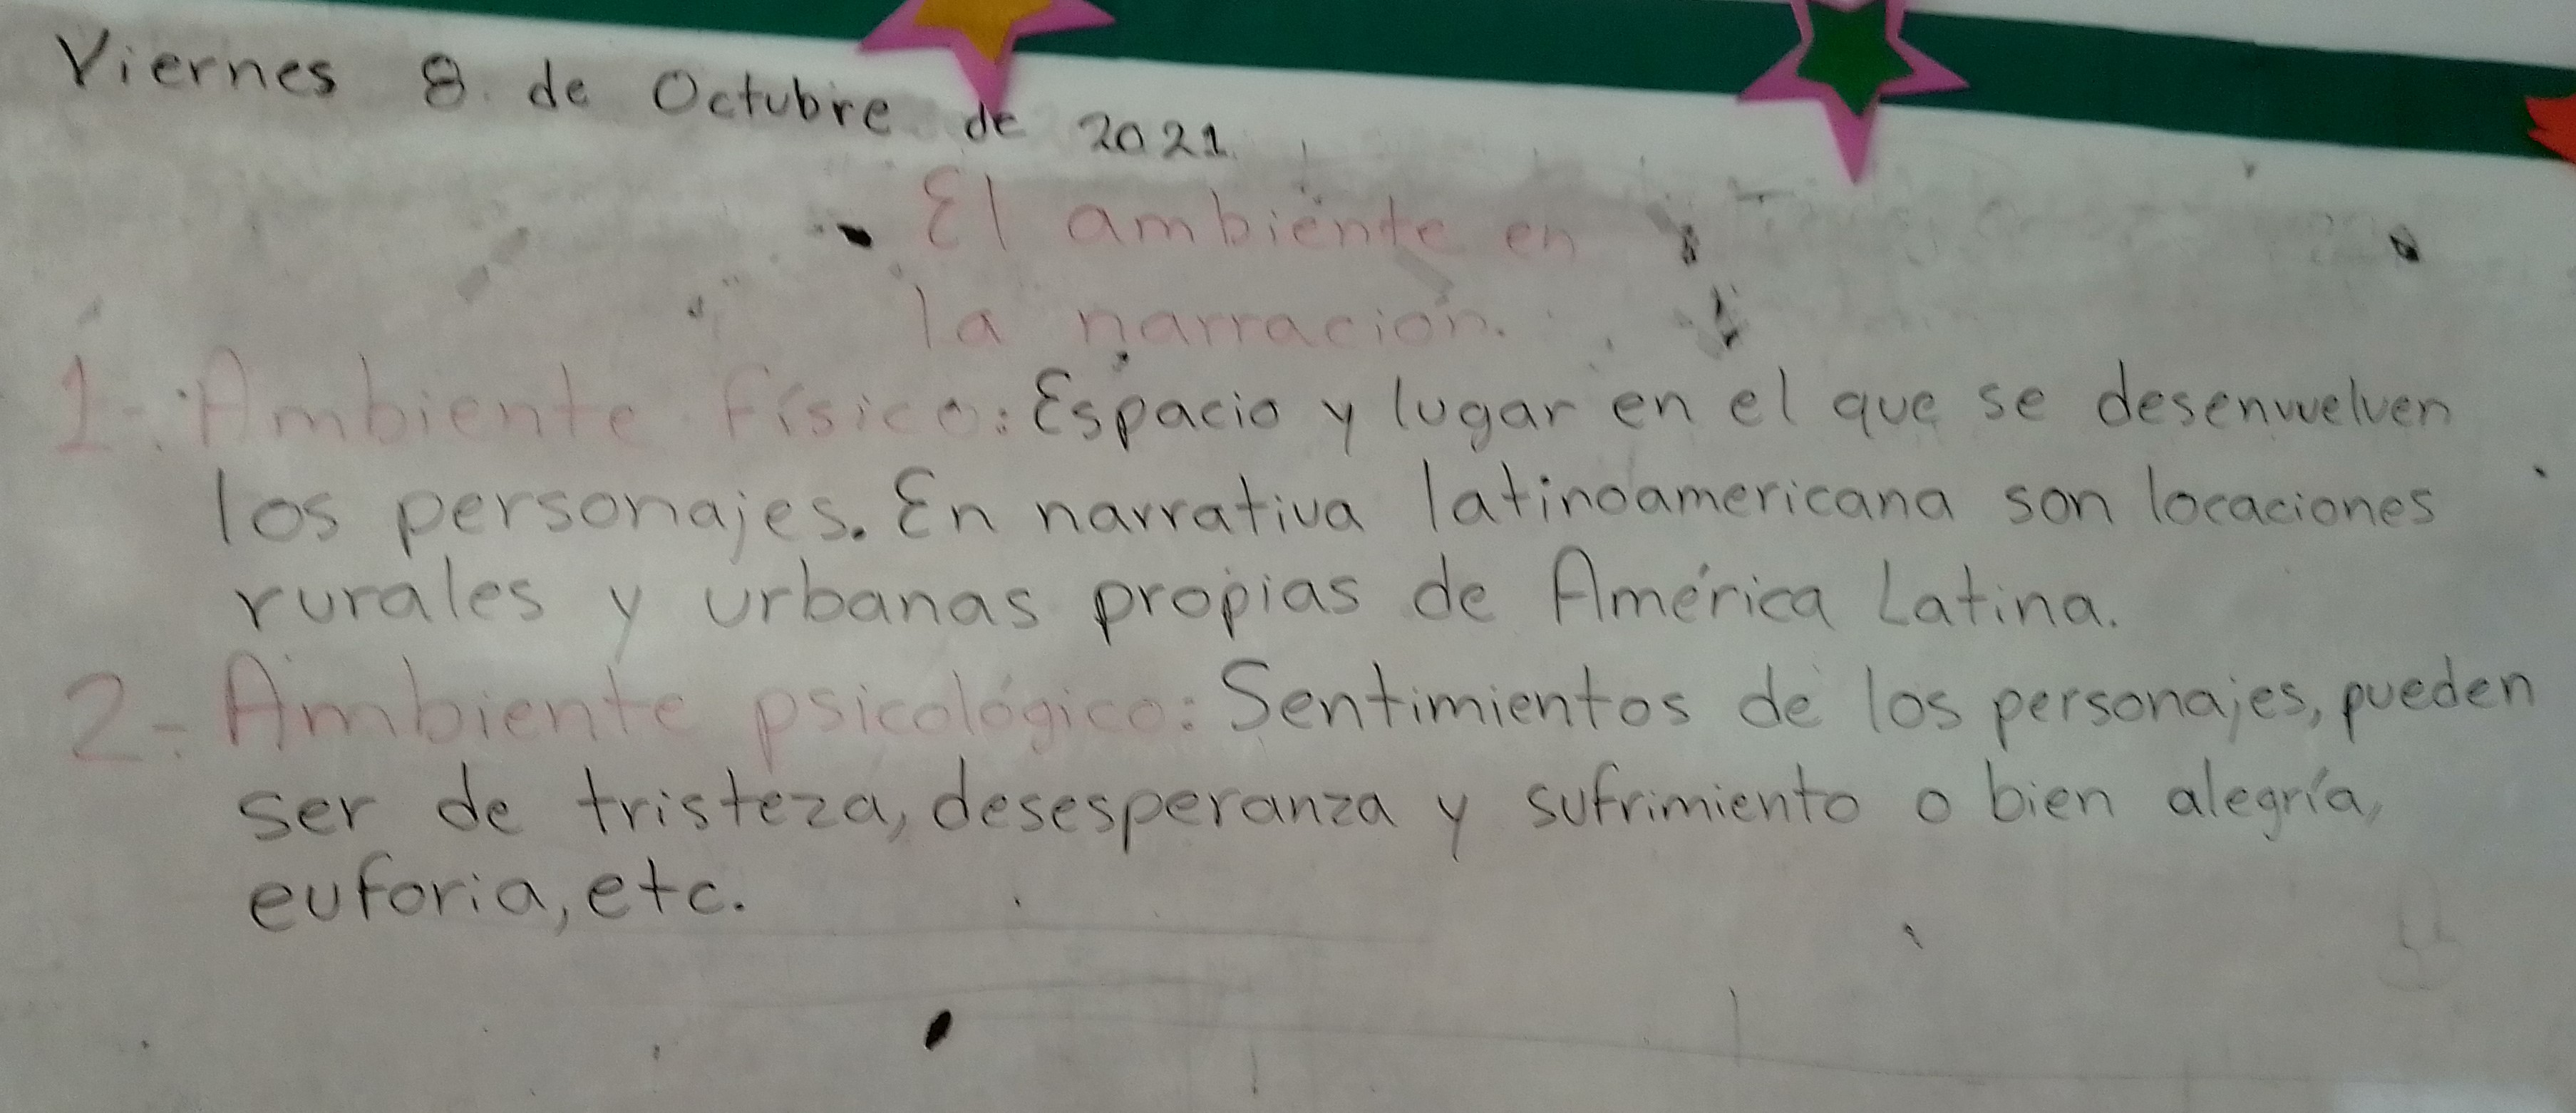 Viernes 8 de Octubre de 2021
El ambiente en
la narración.
1-. Ambiente físico: Espacio y lugar en el que se desenvuelven
los personajes. En narrativa latinoamericana son locaciones
rurales y urbanas propias de América Latina.
2-. Ambiente psicológico: Sentimientos de los personajes, pueden
ser de tristeza, desesperanza y sufrimiento o bien alegría,
euforia, etc.